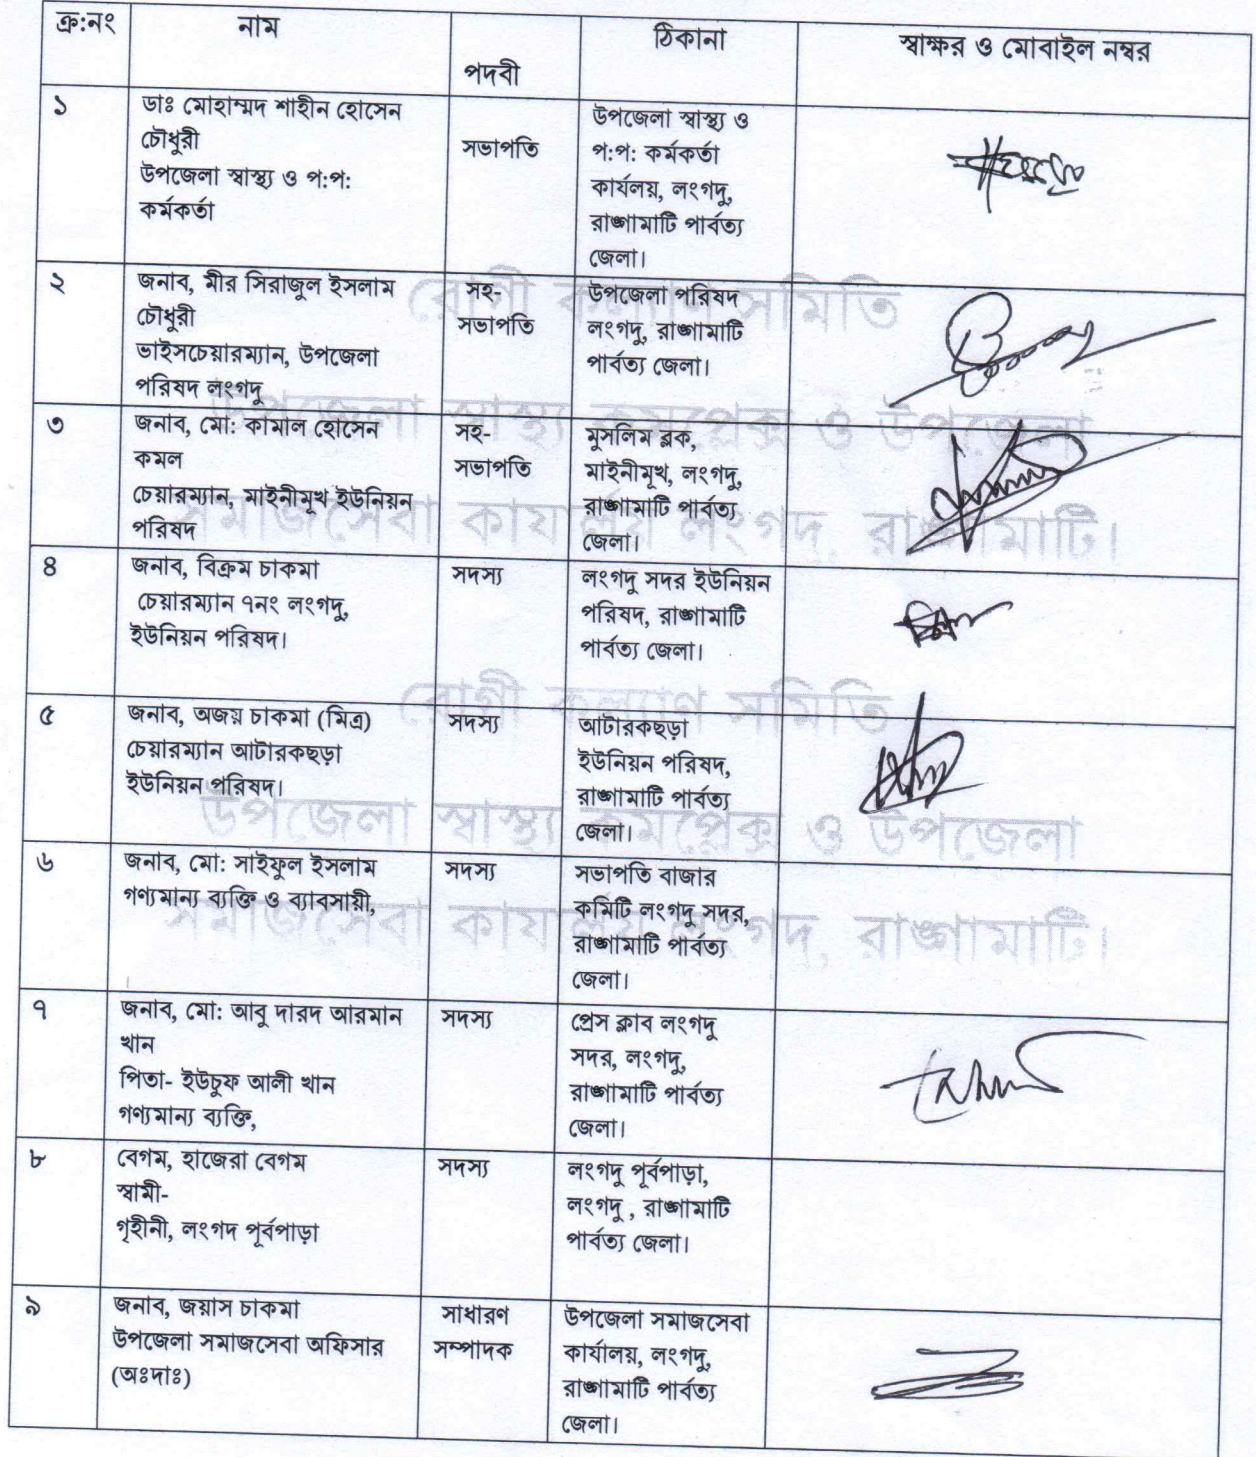 ক্র:নং নাম পদবী ঠিকানা স্বাক্ষর ও মোবাইল নম্বর
১
ডাঃ মোহাম্মদ শাহীন হোসেন
চৌধুরী
উপজেলা স্বাস্থ্য ও প:প:
কর্মকর্তা
সভাপতি
উপজেলা স্বাস্থ্য ও
প:প: কর্মকর্তা
কার্যলয়, লংগদু,
রাঙ্গামাটি পার্বত্য
জেলা।
২
জনাব, মীর সিরাজুল ইসলাম
চৌধুরী
ভাইসচেয়ারম্যান, উপজেলা
পরিষদ লংগদু
সহ-
সভাপতি
উপজেলা পরিষদ
লংগদু, রাঙ্গামাটি
পার্বত্য জেলা।
৩
জনাব, মো: কামাল হোসেন
কমল
চেয়ারম্যান, মাইনীমূখ ইউনিয়ন
পরিষদ
সহ-
সভাপতি
মুসলিম ব্লক,
মাইনীমূখ, লংগদু,
রাঙ্গামাটি পার্বত্য
জেলা।
৪
জনাব, বিক্রম চাকমা
চেয়ারম্যান ৭নং লংগদু,
ইউনিয়ন পরিষদ।
সদস্য
লংগদু সদর ইউনিয়ন
পরিষদ, রাঙ্গামাটি
পার্বত্য জেলা।
৫
জনাব, অজয় চাকমা (মিত্র)
চেয়ারম্যান আটারকছড়া
ইউনিয়ন পরিষদ।
সদস্য
আটারকছড়া
ইউনিয়ন পরিষদ,
রাঙ্গামাটি পার্বত্য
জেলা।
৬
জনাব, মো: সাইফুল ইসলাম
গণ্যমান্য ব্যক্তি ও ব্যাবসায়ী,
সদস্য
সভাপতি বাজার
কমিটি লংগদু সদর,
রাঙ্গামাটি পার্বত্য
জেলা।
৭
জনাব, মো: আবু দারদ আরমান
খান
পিতা- ইউচুফ আলী খান
গণ্যমান্য ব্যক্তি,
সদস্য
প্রেস ক্লাব লংগদু
সদর, লংগদু,
রাঙ্গামাটি পার্বত্য
জেলা।
৮
বেগম, হাজেরা বেগম
স্বামী-
গৃহীনী, লংগদ পূর্বপাড়া
সদস্য
লংগদু পূর্বপাড়া,
লংগদু , রাঙ্গামাটি
পার্বত্য জেলা।
৯
জনাব, জয়াস চাকমা
উপজেলা সমাজসেবা অফিসার
(অঃদাঃ)
সাধারণ
সম্পাদক
উপজেলা সমাজসেবা
কার্যালয়, লংগদু,
রাঙ্গামাটি পার্বত্য
জেলা।
রোগী কল্যাণ সমিতি
উপজেলা স্বাস্থ্য কমপ্লেক্স ও উপজেলা
সমাজসেবা কার্যালয় লংগদ, রাঙ্গামাটি।
রোগী কল্যাণ সমিতি
উপজেলা স্বাস্থ্য কমপ্লেক্স ও উপজেলা
সমাজসেবা কার্যালয় লংগদ, রাঙ্গামাটি।